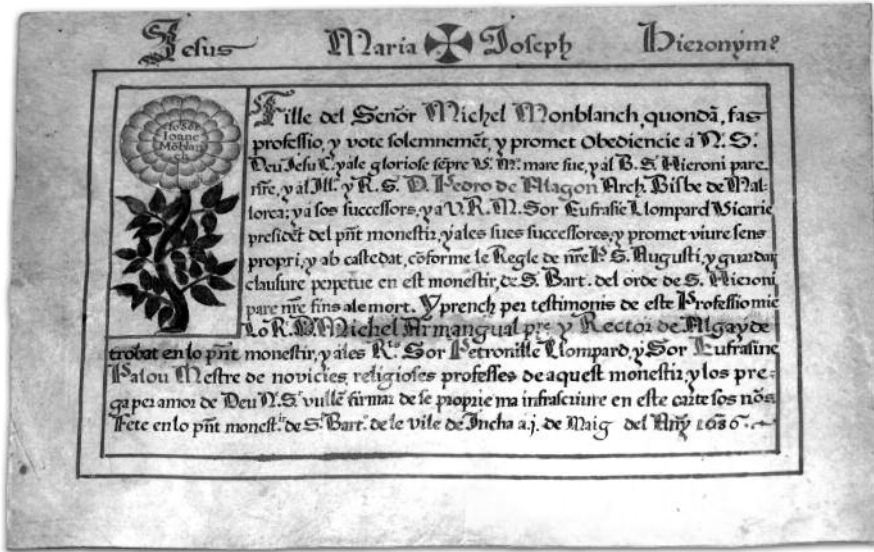 Jesus Maria Joseph Hieronym9
Jo Sor
Joane
Moblan
ch
Fille del Senõr Michel Monblanch, quondā, fas
professio, y vote solemnemēt, y promet Obediencie á N. S.r
Deu Jesu C. y ale gloriose sēpre V. M. mare sue, y al B. S. Hieroni pare
nr̃e, y al Ill. y R. S. D. Pedro de Alagon Arch. Bisbe de Mal-
lorca; y a sos successors, y a V. R. M. Sor Eufrasie Llompard Vicarie
presidēt del pñt monestir, y ales sues successores, y promet viure sens
propri, y ab castedat, cõforme le Regle de nr̃e P. S. Augusti, y guardar
clausure perpetue en est monestir, de S. Bart. del orde de S. Hieroni
pare nr̃e fins ale mort. Y prench per testimonis de este Professio mie
Lo R. D. Michel Armangual pre. y Rector de Algayde
trobat en lo pñt monestir, y ales R.ts Sor Petronille Llompard, y Sor Eufrasine
Palou Mestre de novicies, religioses professes de aquest monestir, y los pre-
ga per amor de Deu N. S.r vullē firmar de se proprie ma infrascriure en este carte sos nõs
Fete en lo pñt monest.r de S.t Bart. de le vile de Incha a j. de Maig del Any 1686.